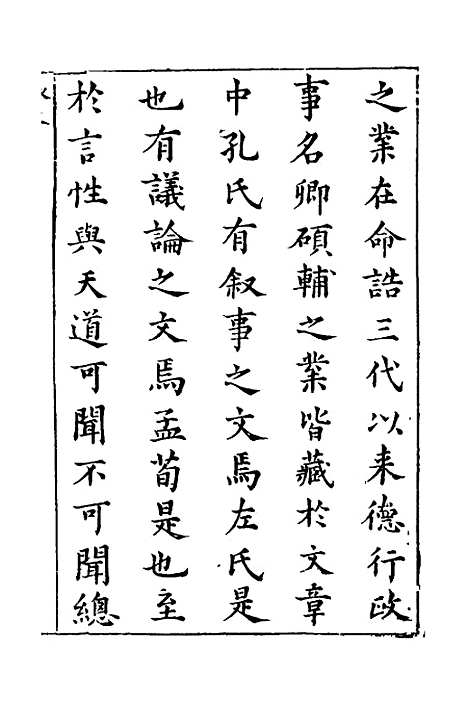 之業在命誥三代以来德行政
事名卿碩輔之業皆藏於文章
中孔氏有叙事之文焉左氏是
也有議論之文焉孟荀是也至
於言性與天道可聞不可聞總